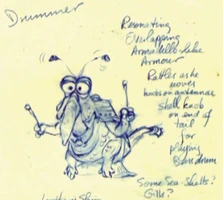 Drummer
Resonating
Overlapping
Armadillo-like
Armour
Rattles as he
moves
knobs on antennae
Skull knob
on end of
tail
for
playing
Bass drum
Some Sea-Shells?
Gills?